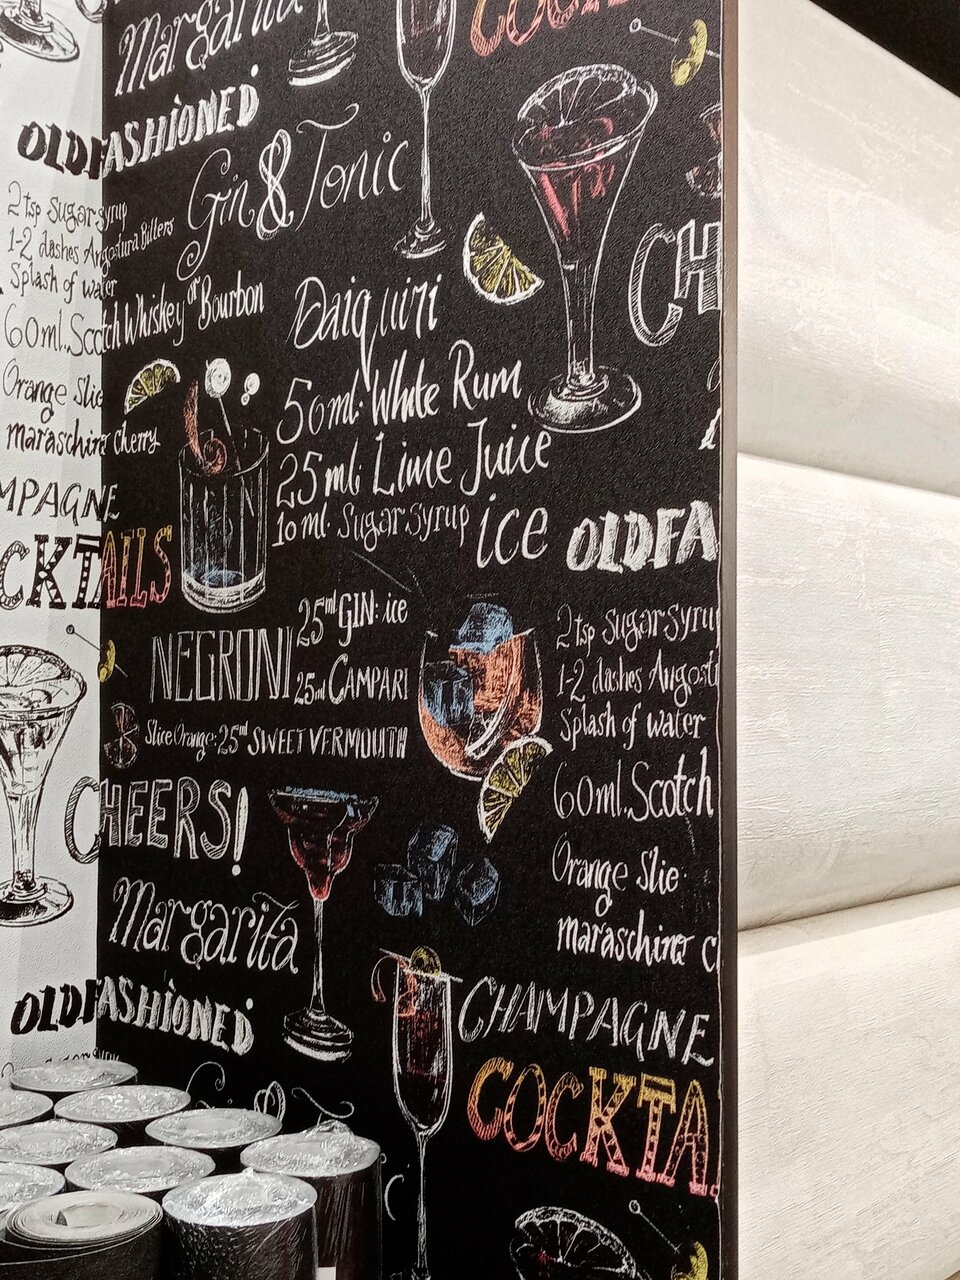 Margarita
COCK
OLDFASHIONED
Gin & Tonic
2 tsp Sugar syrup
1-2 dashes Angostura Bitters
Splash of water
60ml. Scotch Whiskey or Bourbon
Orange Slie
maraschino cherry
MPAGNE
CKTAILS
CH
Daiquiri
50 ml. White Rum
25 ml. Lime Juice
10 ml. Sugar Syrup ice
NEGRONI
25ml GIN: ice
25ml CAMPARI
Slice Orange: 25ml SWEET VERMOUTH
CHEERS!
Margarita
OLDFASHIONED
OLDFA
2 tsp Sugar Syru
1-2 dashes Angost
Splash of water
60ml. Scotch
Orange Slie
maraschino c
CHAMPAGNE
COCKTA